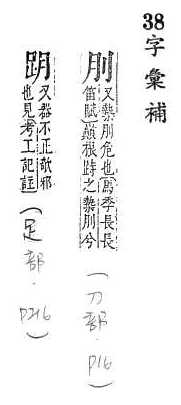 38字彙補
刖 又槷刖危也(馬季長長
笛賦)巔根跱之槷刖兮
(刀部．P16)
跀 又器不正欹邪
也見考工記註
(足部．P216)